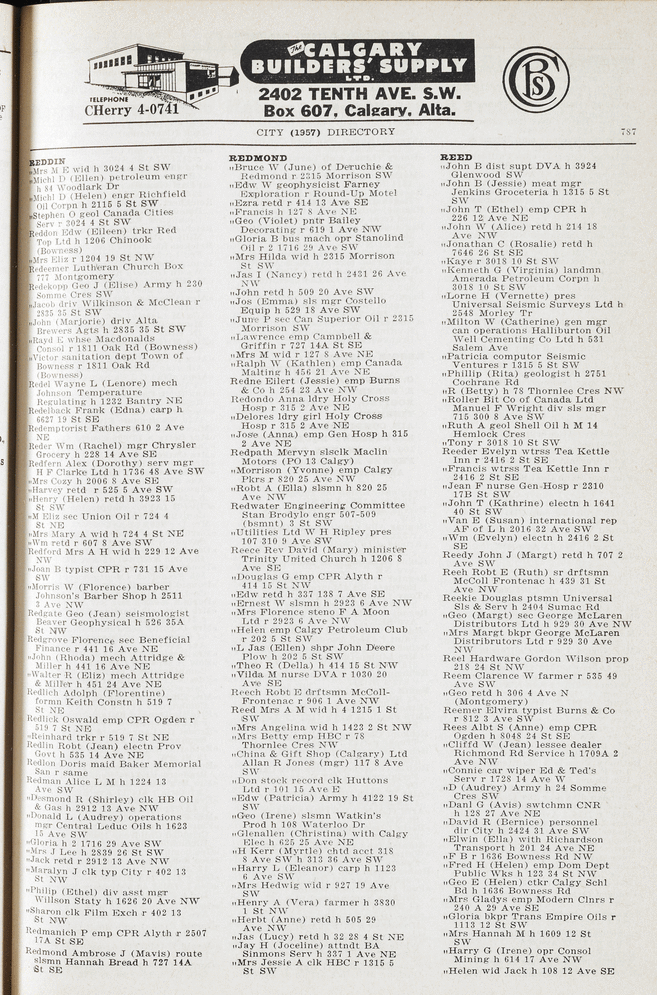 The CALGARY
BUILDERS' SUPPLY
LTD.
TELEPHONE
CHerry 4-0741
2402 TENTH AVE. S.W.
Box 607, Calgary, Alta.
CBS
CITY (1957) DIRECTORY
787
REDDIN
„Mrs M E wid h 3024 4 St SW
„Michl D (Ellen) petroleum engr
h 84 Woodlark Dr
„Michl D (Helen) engr Richfield
Oil Corpn h 2115 5 St SW
„Stephen O geol Canada Cities
Serv r 3024 4 St SW
Reddon Edw (Eileen) trkr Red
Top Ltd h 1206 Chinook
(Bowness)
„Mrs Eliz r 1204 19 St NW
Redeemer Lutheran Church Box
777 Montgomery
Redekopp Geo J (Elise) Army h 230
Somme Cres SW
„Jacob driv Wilkinson & McClean r
2835 35 St SW
„John (Marjorie) driv Alta
Brewers Agts h 2835 35 St SW
„Rayd E whse Macdonalds
Consol r 1811 Oak Rd (Bowness)
„Victor sanitation dept Town of
Bowness r 1811 Oak Rd
(Bowness)
Redel Wayne L (Lenore) mech
Johnson Temperature
Regulating h 1232 Bantry NE
Redelback Frank (Edna) carp h
6627 19 St SE
Redemptorist Fathers 610 2 Ave
NE
Reder Wm (Rachel) mgr Chrysler
Grocery h 228 14 Ave SE
Redfern Alex (Dorothy) serv mgr
H F Clarke Ltd h 1736 48 Ave SW
„Mrs Cozy h 2006 8 Ave SE
„Harvey retd r 525 5 Ave SW
„Henry (Helen) retd h 3923 15
St SW
„M Eliz sec Union Oil r 724 4
St NE
„Mrs Mary A wid h 724 4 St NE
„Wm retd r 607 8 Ave SW
Redford Mrs A H wid h 229 12 Ave
NW
„Joan B typist CPR r 731 15 Ave
SW
„Morris W (Florence) barber
Johnson's Barber Shop h 2511
3 Ave NW
Redgate Geo (Jean) seismologist
Beaver Geophysical h 526 35A
St NW
Redgrove Florence sec Beneficial
Finance r 441 16 Ave NE
„John (Rhoda) mech Attridge &
Miller h 441 16 Ave NE
„Walter R (Eliz) mech Attridge
& Miller h 451 24 Ave NE
Redlich Adolph (Florentine)
formn Keith Constn h 519 7
St NE
Redlick Oswald emp CPR Ogden r
519 7 St NE
„Reinhard trkr r 519 7 St NE
Redlin Robt (Jean) electn Prov
Govt h 535 14 Ave NE
Redlon Doris maid Baker Memorial
San r same
Redman Alice L M h 1224 13
Ave SW
„Desmond R (Shirley) clk HB Oil
& Gas h 2912 13 Ave NW
„Donald L (Audrey) operations
mgr Central Leduc Oils h 1623
15 Ave SW
„Gloria h 2 1716 29 Ave SW
„Mrs J Lee h 2839 26 St SW
„Jack retd r 2912 13 Ave NW
„Maralyn J clk typ City r 402 13
St NW
„Philip (Ethel) div asst mgr
Willson Staty h 1626 20 Ave NW
„Sharon clk Film Exch r 402 13
St NW
Redmanich P emp CPR Alyth r 2507
17A St SE
Redmond Ambrose J (Mavis) route
slsmn Hannah Bread h 727 14A
St SE
REDMOND
„Bruce W (June) of Deruchie &
Redmond r 2315 Morrison SW
„Edw W geophysicist Farney
Exploration r Round-Up Motel
„Ezra retd r 414 13 Ave SE
„Francis h 127 8 Ave NE
„Geo (Violet) pntr Bailey
Decorating r 619 1 Ave NW
„Gloria B bus mach opr Stanolind
Oil r 2 1716 29 Ave SW
„Mrs Hilda wid h 2315 Morrison
St SW
„Jas I (Nancy) retd h 2431 26 Ave
NW
„John retd h 509 20 Ave SW
„Jos (Emma) sls mgr Costello
Equip h 529 18 Ave SW
„June P sec Can Superior Oil r 2315
Morrison SW
„Lawrence emp Campbell &
Griffin r 727 14A St SE
„Mrs M wid r 127 8 Ave NE
„Ralph W (Kathlen) emp Canada
Malting h 456 21 Ave NE
Redne Eilert (Jessie) emp Burns
& Co h 254 23 Ave NW
Redondo Anna ldry Holy Cross
Hosp r 315 2 Ave NE
„Delores ldry girl Holy Cross
Hosp r 315 2 Ave NE
„Jose (Anna) emp Gen Hosp h 315
2 Ave NE
Redpath Mervyn slsclk Maclin
Motors (PO 13 Calgy)
„Morrison (Yvonne) emp Calgy
Pkrs r 820 25 Ave NW
„Robt A (Ella) slsmn h 820 25
Ave NW
Redwater Engineering Committee
Stan Brodylo engr 507-509
(bsmnt) 3 St SW
„Utilities Ltd W H Ripley pres
107 310 9 Ave SW
Reece Rev David (Mary) minister
Trinity United Church h 1206 8
Ave SE
„Douglas G emp CPR Alyth r
414 15 St NW
„Edw retd h 337 138 7 Ave SE
„Ernest W slsmn h 2923 6 Ave NW
„Mrs Florence steno F A Moon
Ltd r 2923 6 Ave NW
„Helen emp Calgy Petroleum Club
r 202 5 St SW
„L Jas (Ellen) shpr John Deere
Plow h 202 5 St SW
„Theo R (Della) h 414 15 St NW
„Vilda M nurse DVA r 1030 20
Ave SE
Reech Robt E drftsmn McColl-
Frontenac r 906 1 Ave NW
Reed Mrs A M wid h 4 1215 1 St
SW
„Mrs Angelina wid h 1423 2 St NW
„Mrs Betty emp HBC r 78
Thornlee Cres NW
„China & Gift Shop (Calgary) Ltd
Allan R Jones (mgr) 117 8 Ave
SW
„Don stock record clk Huttons
Ltd r 101 15 Ave E
„Edw (Patricia) Army h 4122 19 St
SW
„Geo (Irene) slsmn Watkin's
Prod h 108 Waterloo Dr
„Glenallen (Christina) with Calgy
Elec h 625 25 Ave NE
„H Kerr (Myrtle) chtd acct 318
8 Ave SW h 313 36 Ave SW
„Harry L (Eleanor) carp h 1123
6 Ave SW
„Mrs Hedwig wid r 927 19 Ave
SW
„Henry A (Vera) farmer h 3830
1 St NW
„Herbt (Anne) retd h 505 29
Ave NW
„Jas (Lucy) retd h 32 28 4 St NE
„Jay H (Joceline) attndt BA
Sinmons Serv h 337 1 Ave NE
„Mrs Jessie A clk HBC r 1315 5
St SW
REED
„John B dist supt DVA h 3924
Glenwood SW
„John B (Jessie) meat mgr
Jenkins Groceteria h 1315 5 St
SW
„John T (Ethel) emp CPR h
226 12 Ave NE
„John W (Alice) retd h 214 18
Ave NW
„Jonathan C (Rosalie) retd h
7646 26 St SE
„Kaye r 3018 10 St SW
„Kenneth G (Virginia) landmn
Amerada Petroleum Corpn h
3018 10 St SW
„Lorne H (Vernette) pres
Universal Seismic Surveys Ltd h
2548 Morley Tr
„Milton W (Catherine) gen mgr
can operations Halliburton Oil
Well Cementing Co Ltd h 531
Salem Ave
„Patricia computor Seismic
Ventures r 1315 5 St SW
„Phillip (Rita) geologist h 2751
Cochrane Rd
„R (Betty) h 78 Thornlee Cres NW
„Roller Bit Co of Canada Ltd
Manuel F Wright div sls mgr
715 300 8 Ave SW
„Ruth A geol Shell Oil h M 14
Hemlock Cres
„Tony r 3018 10 St SW
Reeder Evelyn wtrss Tea Kettle
Inn r 2416 2 St SE
„Francis wtrss Tea Kettle Inn r
2416 2 St SE
„Jean F nurse Gen Hosp r 2310
17B St SW
„John T (Kathrine) electn h 1641
40 St SW
„Van E (Susan) international rep
AF of L h 2016 32 Ave SW
„Wm (Evelyn) electn h 2416 2 St
SE
Reedy John J (Margt) retd h 707 2
Ave SW
Reeh Robt E (Ruth) sr drftsmn
McColl Frontenac h 439 31 St
Ave NW
Reekie Douglas ptsmn Universal
Sls & Serv h 2404 Sumac Rd
„Geo (Margt) sec George McLaren
Distributors Ltd r 929 30 Ave NW
„Mrs Margt bkpr George McLaren
Distributors Ltd r 929 30 Ave
NW
Reel Hardware Gordon Wilson prop
218 24 St NW
Reem Clarence W farmer r 535 49
Ave SW
„Geo retd h 306 4 Ave N
(Montgomery)
Reemer Elvira typist Burns & Co
r 812 3 Ave SW
Rees Albt S (Anne) emp CPR
Ogden h 8048 24 St SE
„Cliffd W (Jean) lessee dealer
Richmond Rd Service h 1709A 2
Ave NW
„Connie car wiper Ed & Ted's
Serv r 1728 14 Ave W
„D (Audrey) Army h 24 Somme
Cres SW
„Danl G (Avis) swtchmn CNR
h 128 27 Ave NE
„David R (Bernice) personnel
dir City h 2424 31 Ave SW
„Elwin (Ella) with Richardson
Transport h 201 24 Ave NE
„F B r 1636 Bowness Rd NW
„Fred H (Helen) emp Dom Dept
Public Wks h 123 34 St NW
„Geo E (Helen) ctkr Calgy Schl
Bd h 1636 Bowness Rd
„Mrs Gladys emp Modern Clnrs r
240 A 29 Ave SE
„Gloria bkpr Trans Empire Oils r
1113 12 St SW
„Mrs Hannah M h 1609 12 St
SW
„Harry G (Irene) opr Consol
Mining h 614 17 Ave NW
„Helen wid Jack h 108 12 Ave SE